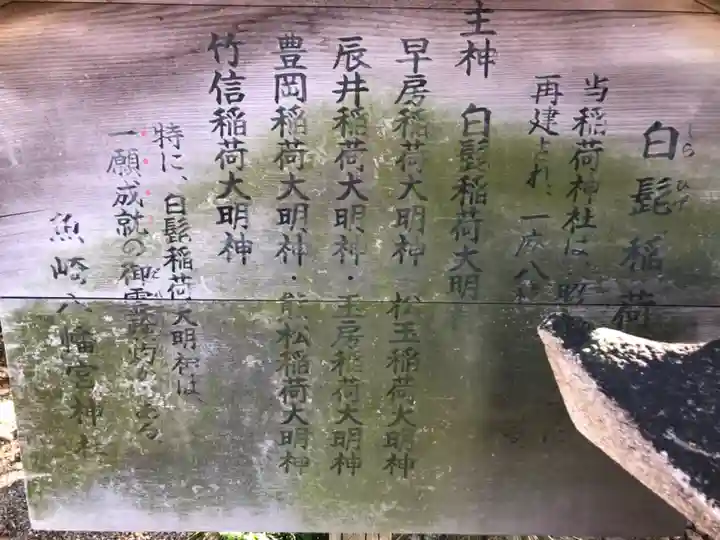 白髭稲荷
しら ひげ
当稲荷神社は、昭
再建され、一床八
主神 白髭稲荷大明
早房稲荷大明神・松玉稲荷大明神
辰井稲荷大明神・玉房稲荷大明神
豊岡稲荷大明神・熊松稲荷大明神
竹信稲荷大明神
特に、白髭稲荷大明神は、
一願成就の御霊
魚崎八幡宮神社